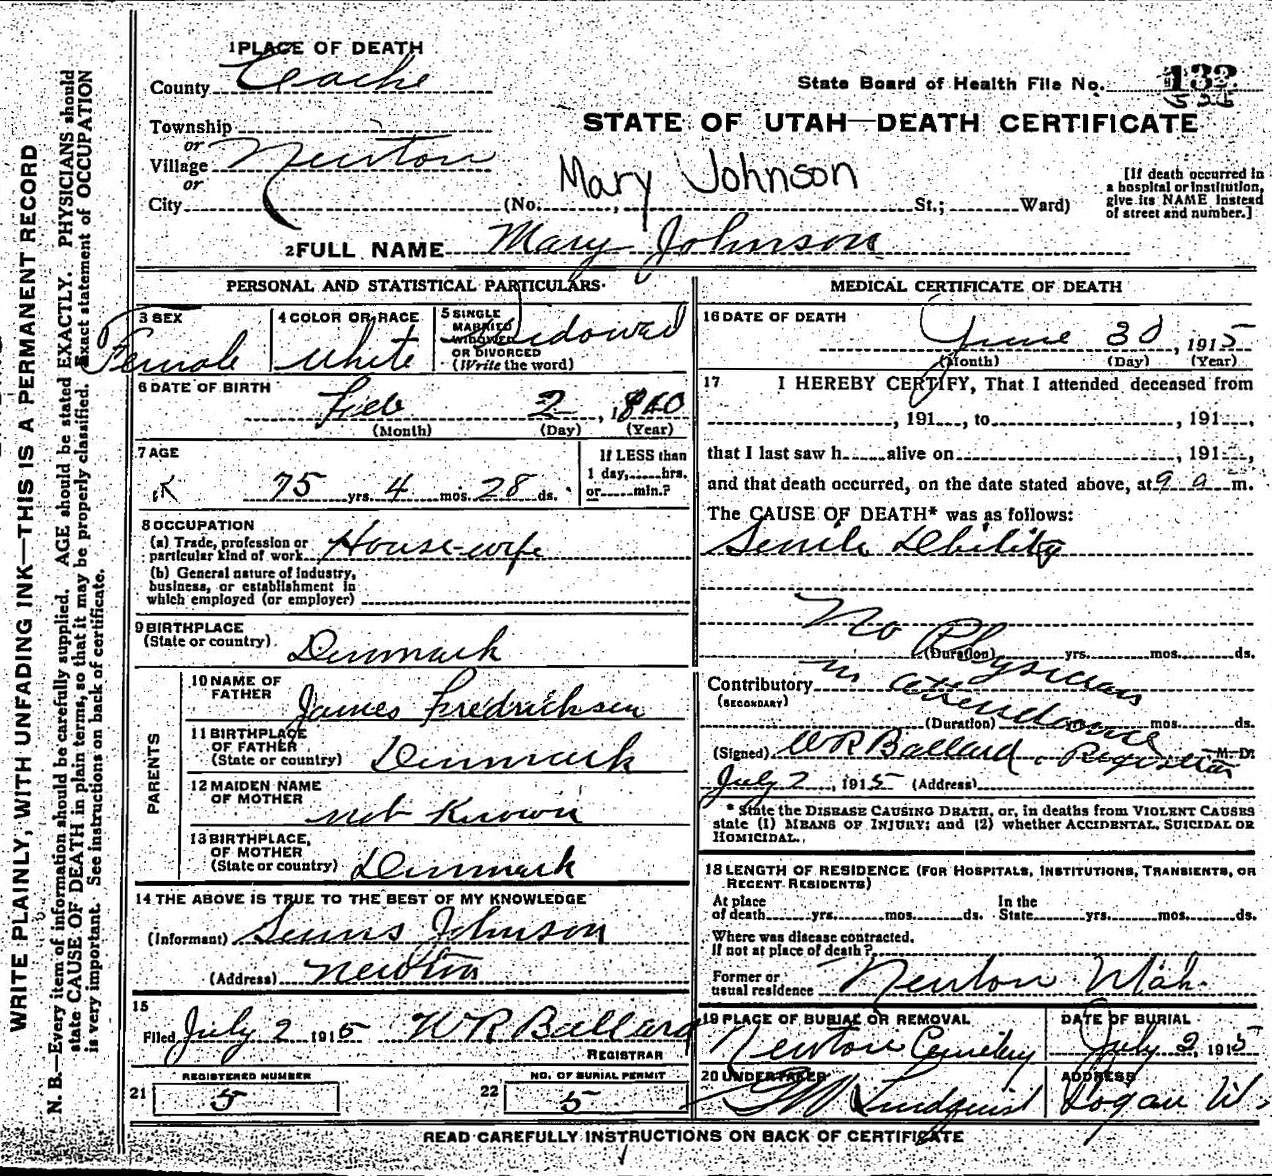 WRITE PLAINLY, WITH UNFADING INK—THIS IS A PERMANENT RECORD
N. B.—Every item of information should be carefully supplied. AGE should be stated EXACTLY. PHYSICIANS should
state CAUSE OF DEATH in plain terms, so that it may be properly classified. Exact statement of OCCUPATION
is very important. See instructions on back of certificate.
1 PLACE OF DEATH
County Cache
State Board of Health File No. 132
535
Township
or
Village Newton
or
City
STATE OF UTAH—DEATH CERTIFICATE
Mary Johnson
(No. , St.; Ward)
[If death occurred in
a hospital or institution,
give its NAME instead
of street and number.]
2 FULL NAME Mary Johnson
PERSONAL AND STATISTICAL PARTICULARS
3 SEX
Female
4 COLOR OR RACE
White
5 SINGLE
MARRIED
WIDOWED
OR DIVORCED
(Write the word)
Widowed
6 DATE OF BIRTH
Feb 2, 1840
(Month) (Day) (Year)
7 AGE
75 yrs. 4 mos. 28 ds.
If LESS than
1 day, hrs.
or min.?
8 OCCUPATION
(a) Trade, profession or
particular kind of work House-wife
(b) General nature of industry,
business, or establishment in
which employed (or employer)
9 BIRTHPLACE
(State or country) Denmark
PARENTS
10 NAME OF
FATHER James Fredricksen
11 BIRTHPLACE
OF FATHER
(State or country) Denmark
12 MAIDEN NAME
OF MOTHER not Known
13 BIRTHPLACE,
OF MOTHER
(State or country) Denmark
14 THE ABOVE IS TRUE TO THE BEST OF MY KNOWLEDGE
(Informant) Johnson
(Address) Newton
15
Filed July 2 1915 W R Ballard
REGISTRAR
21 REGISTERED NUMBER
5
22 NO. OF BURIAL PERMIT
5
MEDICAL CERTIFICATE OF DEATH
16 DATE OF DEATH
June 30, 1915
(Month) (Day) (Year)
17 I HEREBY CERTIFY, That I attended deceased from
, 191 , to , 191 ,
that I last saw h alive on , 191 ,
and that death occurred, on the date stated above, at 9 a m.
The CAUSE OF DEATH* was as follows:
Senile Debility
No Physician
(Duration) yrs. mos. ds.
Contributory in attendance
(SECONDARY)
(Duration) mos. ds.
(Signed) W R Ballard. Registrar M. D.
July 2, 1915 (Address)
* State the DISEASE CAUSING DEATH, or, in deaths from VIOLENT CAUSES
state (1) MEANS OF INJURY; and (2) whether ACCIDENTAL, SUICIDAL OR
HOMICIDAL.
18 LENGTH OF RESIDENCE (FOR HOSPITALS, INSTITUTIONS, TRANSIENTS, OR
RECENT RESIDENTS)
At place
of death yrs. mos. ds.
In the
State yrs. mos. ds.
Where was disease contracted,
If not at place of death?
Former or
usual residence Newton Utah.
19 PLACE OF BURIAL OR REMOVAL
Newton Cemetery
DATE OF BURIAL
July 2, 1915
20 UNDERTAKER
Lundquist
ADDRESS
Logan U.
READ CAREFULLY INSTRUCTIONS ON BACK OF CERTIFICATE